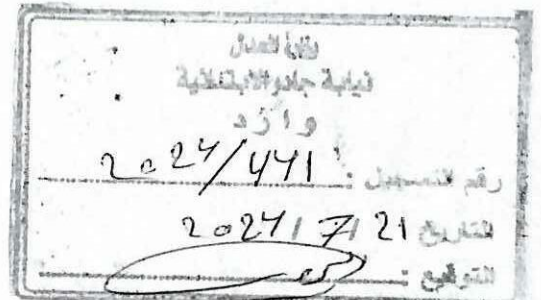 وزارة العدل
نيابة جادو الابتدائية
وارد
رقم التسجيل : 2024/441
التاريخ 21 / 7 / 2024
التوقيع :